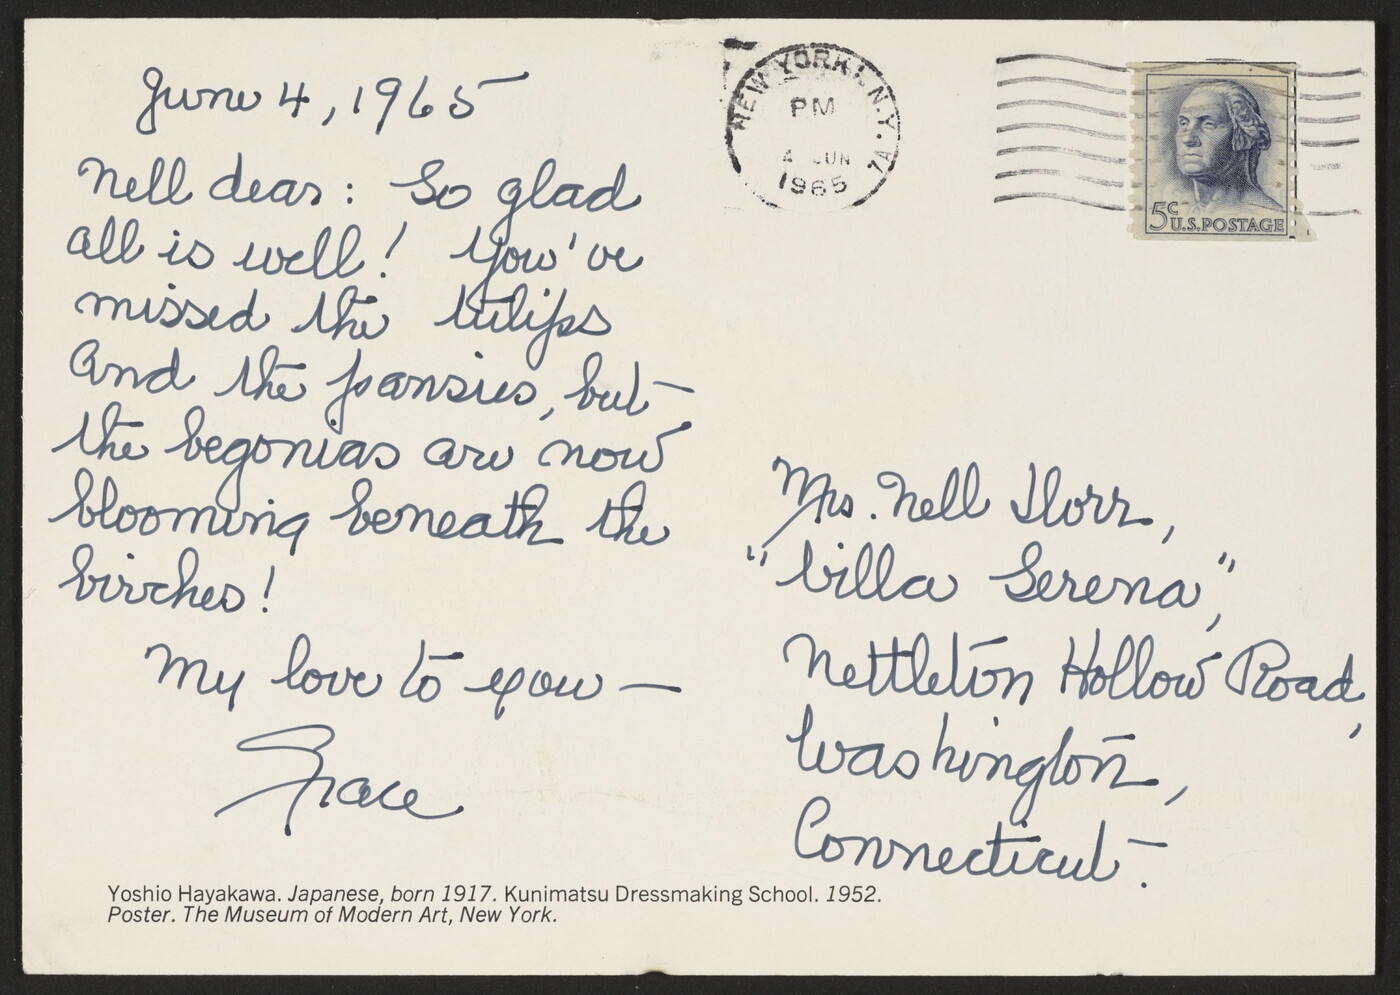 June 4, 1965
Nell dear: So glad
all is well! You've
missed the tulips
and the pansies, but
the begonias are now
blooming beneath the
birches!
My love to you —
Grace
NEW YORK, N.Y.
PM
4 JUN
1965
7A
5c U.S. POSTAGE
Mrs. Nell Dorr,
"Villa Serena",
Nettleton Hollow Road,
Washington,
Connecticut.
Yoshio Hayakawa. Japanese, born 1917. Kunimatsu Dressmaking School. 1952.
Poster. The Museum of Modern Art, New York.